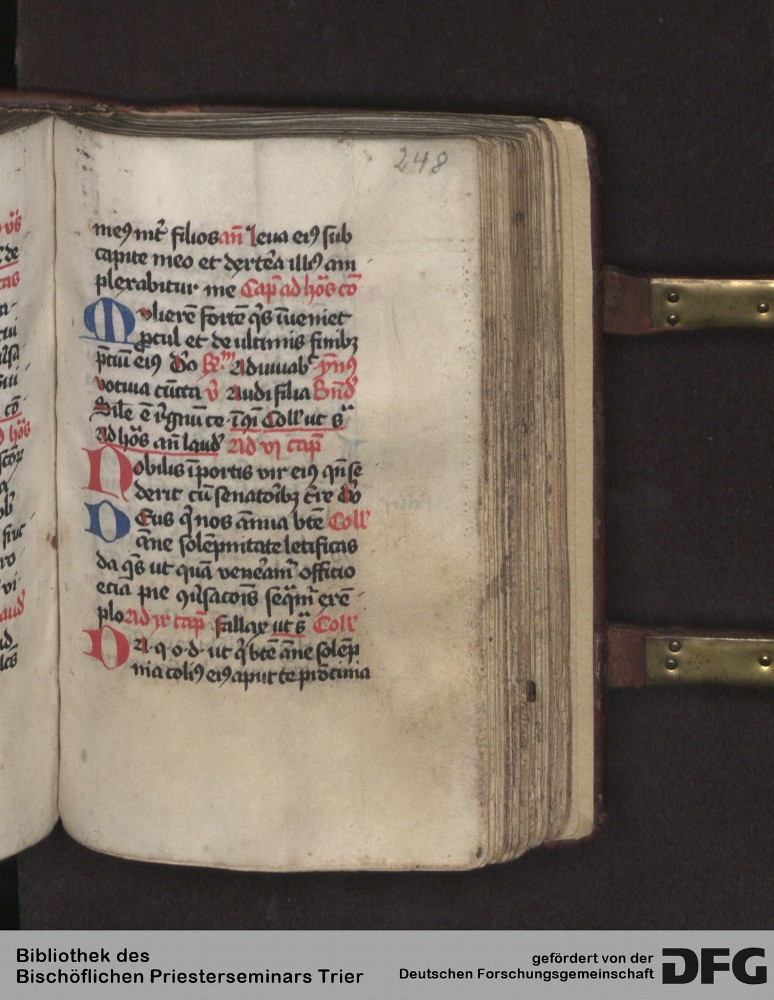 248
meꝰ int̄ filios an̄ Leua eiꝰ sub
capite meo et dertēa illiꝰ am
plexabitur me Cap̄ ad ho̅s co̅
Mulierē fortē q̄s īueniet
ꝓcul et de ultimis finibꝫ
p̄ciū eiꝰ Adiuuab
votiua cūcta v̄ Audi filia Bn̄d
Sile ē ut s̄
ad ho̅s an̄ laud̄ Ad vi cap̄
Nobilis ī portis vir eiꝰ qn̄ se
derit cū senatoribꝫ t̄re
Deus q̄ nos annua bt̄e Coll̄
an̄e solēpnitate letificas
da q̄s ut quā venēam̄ officio
etiā pie ꝯūsacōis seq̄m̄ exē
plo Ad ix cap̄ Fallax ut s̄ Coll̄
Da · q · o · d · ut q̄ bt̄e an̄e solēp
nia coliꝰ eiꝰ aput te
Bibliothek des
Bischöflichen Priesterseminars Trier
gefördert von der
Deutschen Forschungsgemeinschaft
DFG